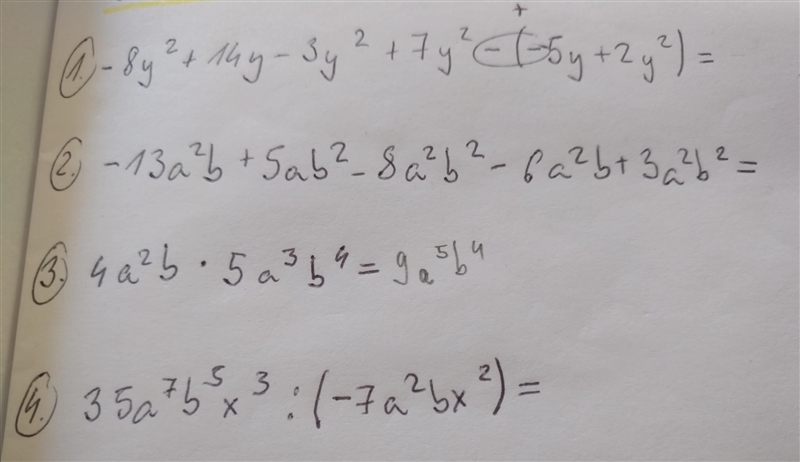 +
1. -8y² + 14y - 3y² + 7y² - (-5y + 2y²) =
2. -13a²b + 5ab² - 8a²b² - 6a²b + 3a²b² =
3. 4a²b · 5a³b⁴ = 9a⁵b⁴
4. 35a⁷b⁵x³ : (-7a²bx²) =